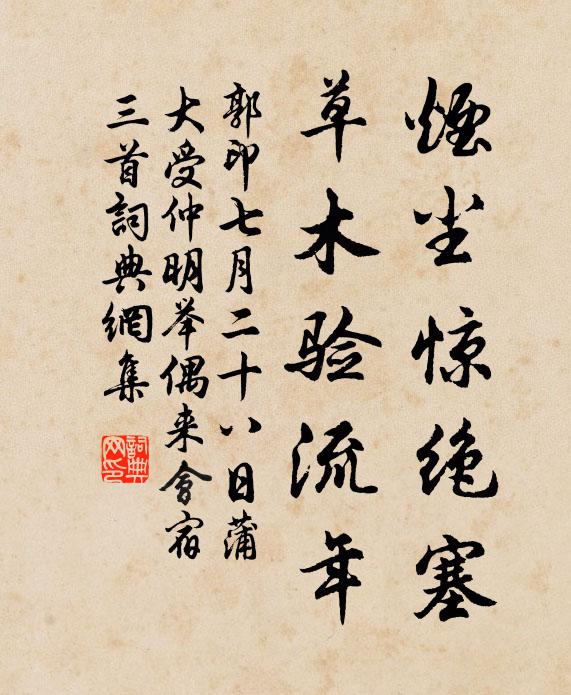 煙尘惊绝塞
草木验流年
郭印七月二十八日蒲
大受仲明举偶来會宿
三首詞典網集
詞典网印